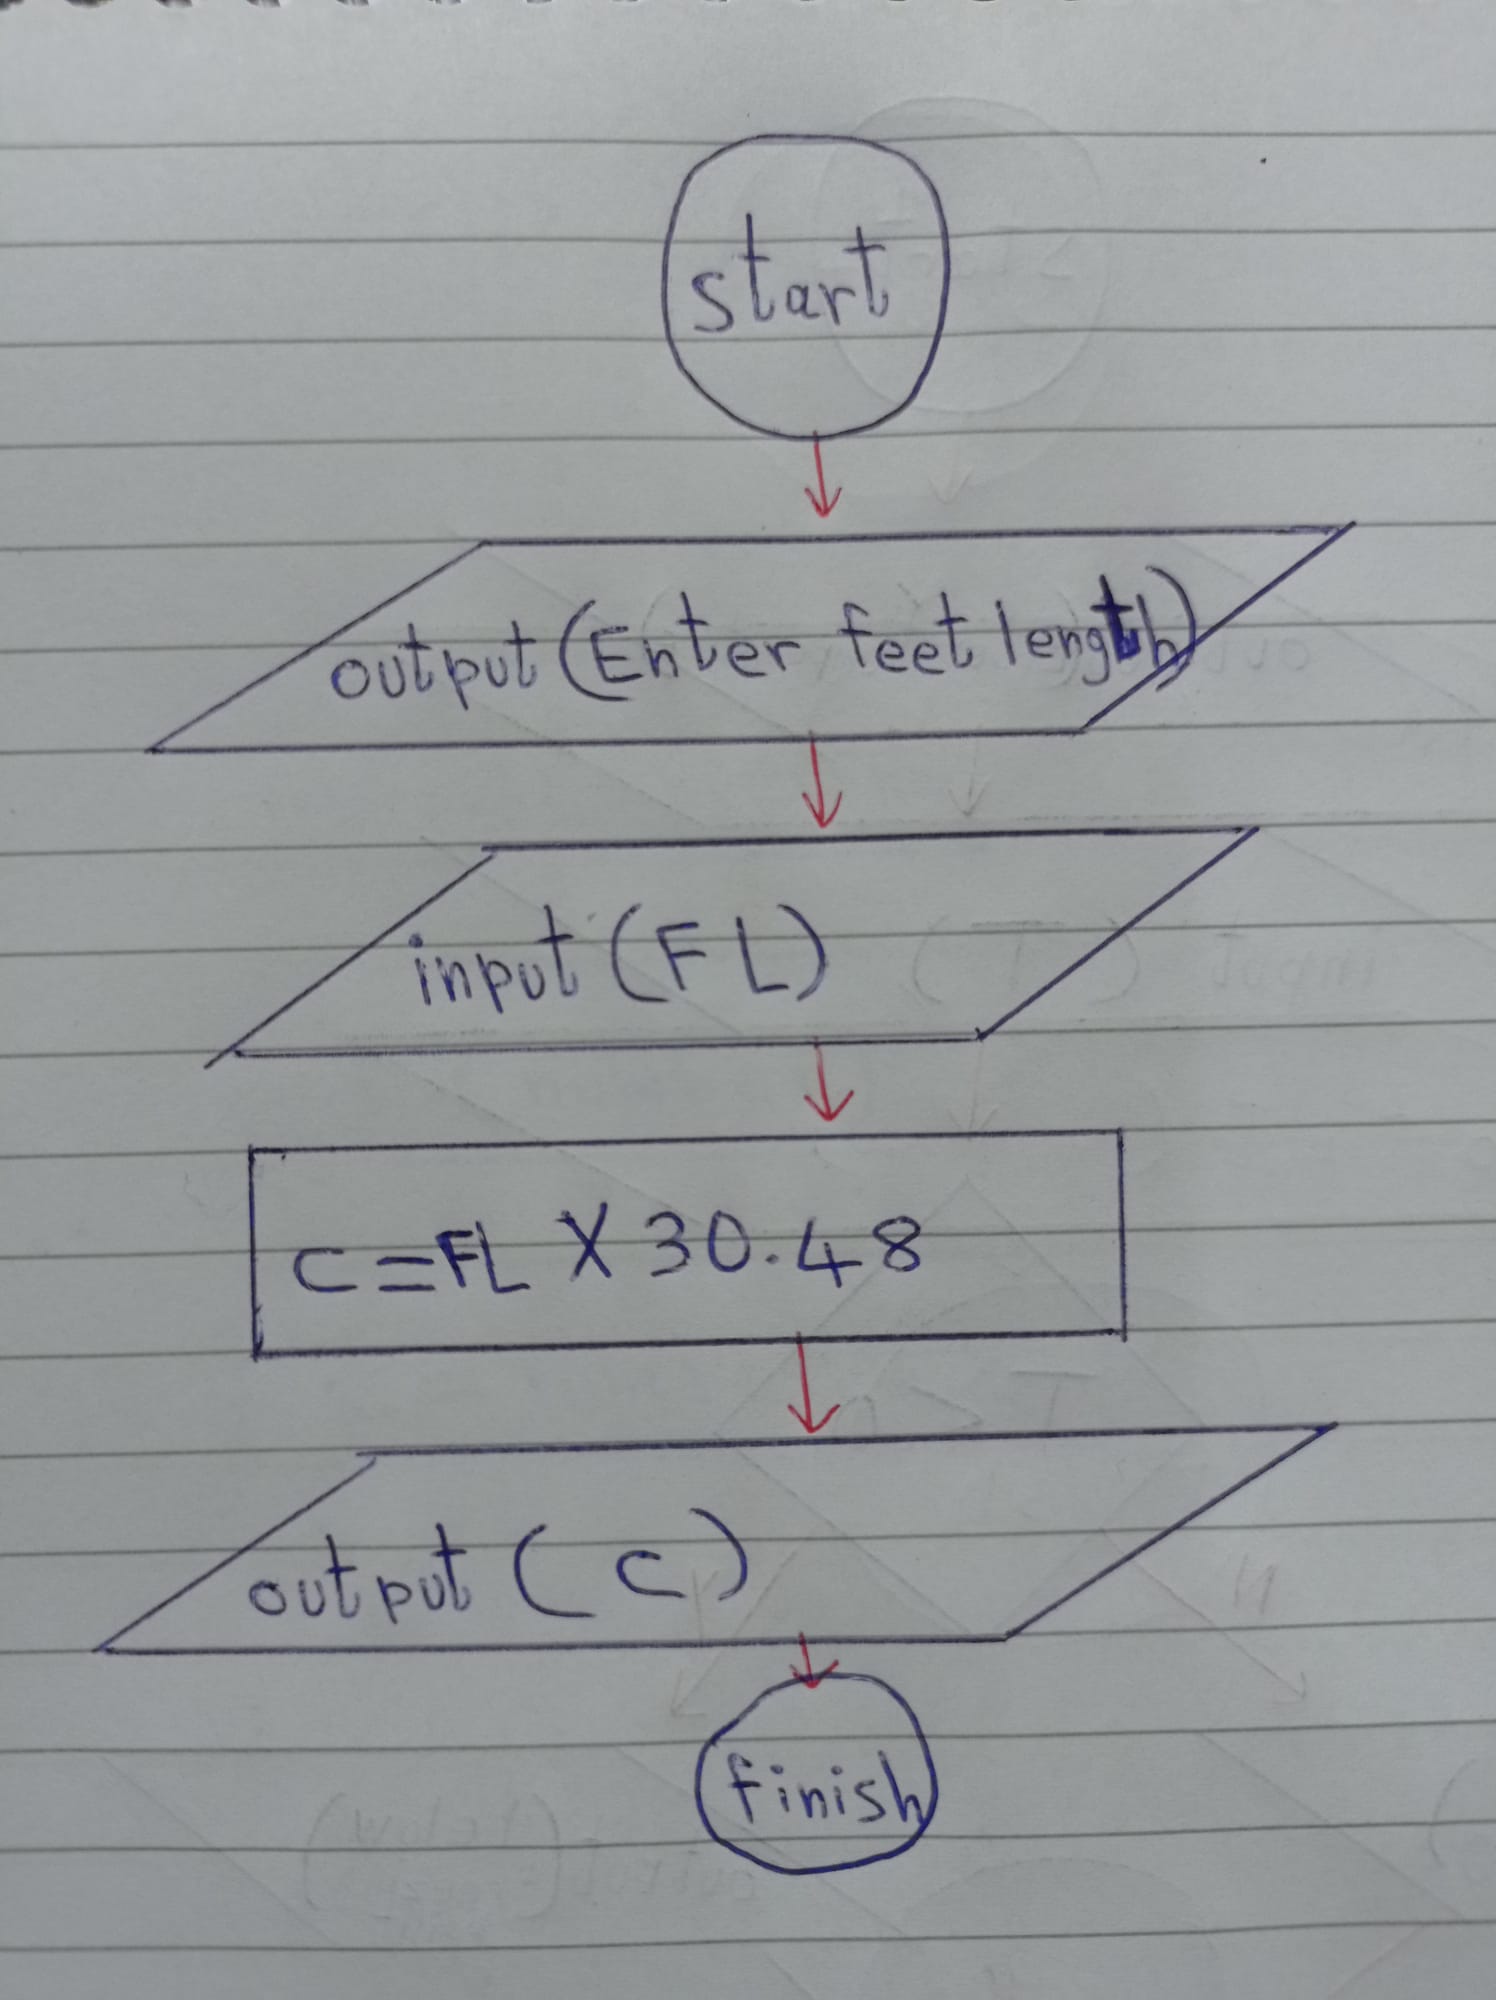 start
output (Enter feet length)
input (FL)
c = FL X 30.48
output ( c )
finish